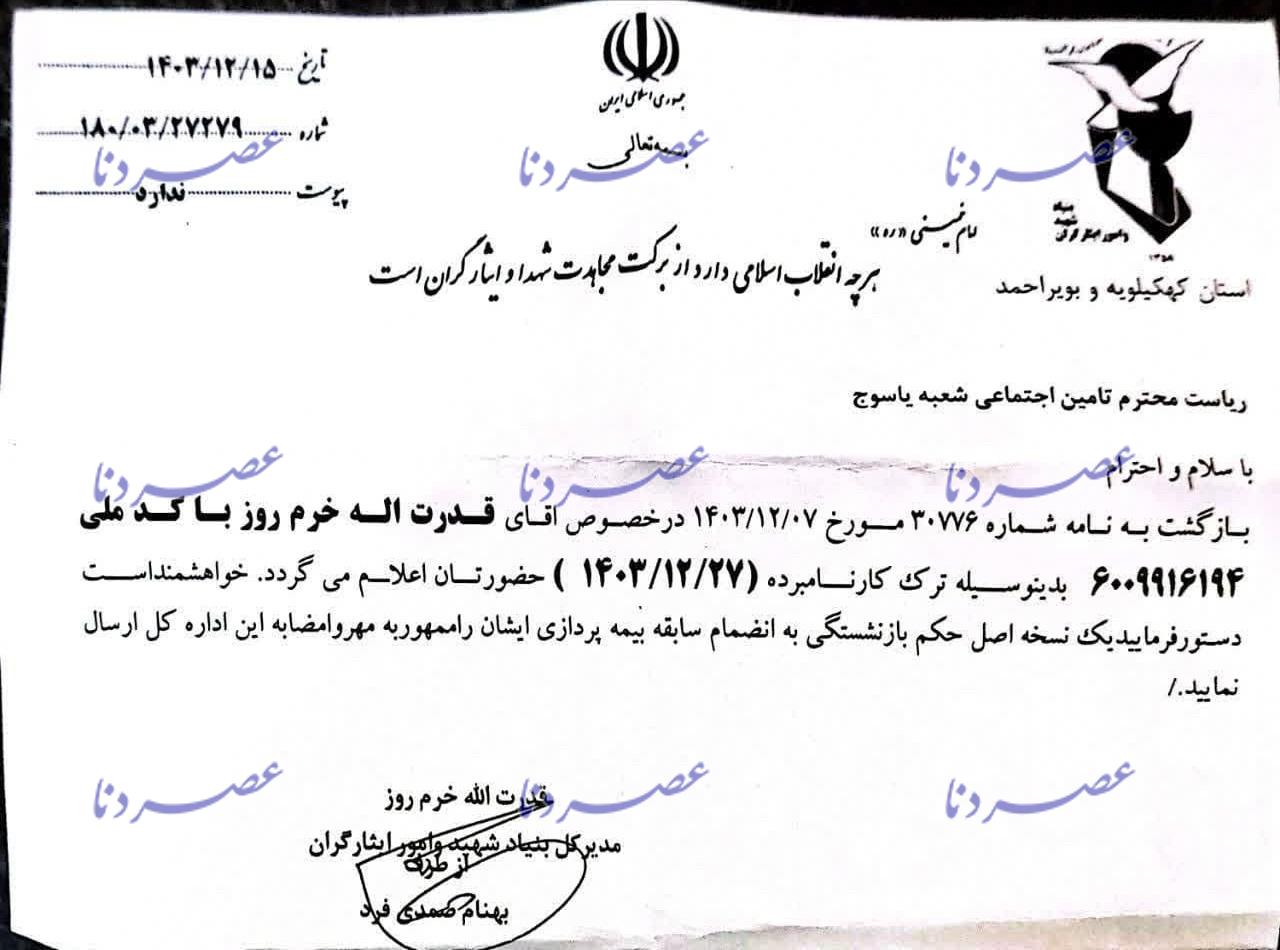 جمهوری اسلامی ایران
بسمه تعالی
تاریخ ۱۴۰۳/۱۲/۱۵
شماره ۱۸۰/۰۳/۲۷۲۷۹
پیوست ندارد
بنیاد
شهید
و امور ایثارگران
۱۳۵۸
استان کهکیلویه و بویراحمد
امام خمینی «ره»
هرچه انقلاب اسلامی دارد از برکت مجاهدت شهدا و ایثارگران است
ریاست محترم تامین اجتماعی شعبه یاسوج
با سلام و احترام
بازگشت به نامه شماره ۳۰۷۷۶ مورخ ۱۴۰۳/۱۲/۰۷ درخصوص اقای قدرت اله خرم روز با کد ملی
۶۰۰۹۹۱۶۱۹۴ بدینوسیله ترک کارنامبرده (۱۴۰۳/۱۲/۲۷ ) حضورتان اعلام می گردد. خواهشمنداست
دستورفرماییدیک نسخه اصل حکم بازنشستگی به انضمام سابقه بیمه پردازی ایشان راممهوربه مهروامضابه این اداره کل ارسال
نمایید./
قدرت الله خرم روز
مدیرکل بنیاد شهید وامور ایثارگران
از طرف
بهنام صمدی فرد
عصر دنا
عصر دنا
عصر دنا
عصر دنا
عصر دنا
عصر دنا
عصر دنا
عصر دنا
عصر دنا